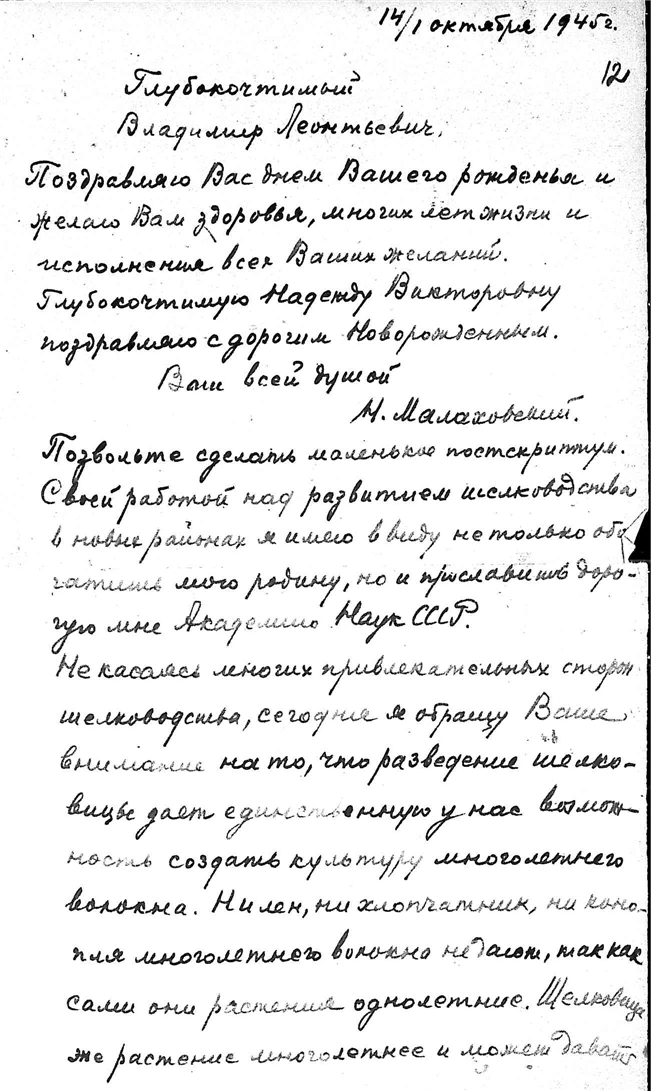 14/1 октября 1945г.
12
Глубокочтимый
Владимир Леонтьевич,
Поздравляю Вас днем Вашего рожденья и
желаю Вам здоровья, многих лет жизни и
исполнения всех Ваших желаний.
Глубокочтимую Надежду Викторовну
поздравляю с дорогим Новорожденным.
Ваш всей душой
Н. Малаховский.
Позвольте сделать маленькое постскриптум.
Своей работой над развитием шелководства
в новых районах я имею ввиду не только обо
гатить мою родину, но и прославить доро-
гую мне Академию Наук СССР.
Не касаясь многих привлекательных сторон
шелководства, сегодня я обращу Ваше
внимание на то, что разведение шелко-
вицы дает единственную у нас возмож-
ность создать культуру многолетнего
волокна. Ни лен, ни хлопчатник, ни коно-
пля многолетнего волокна не дают, так как
сами они растения однолетние. Шелковица
же растение многолетнее и может давать